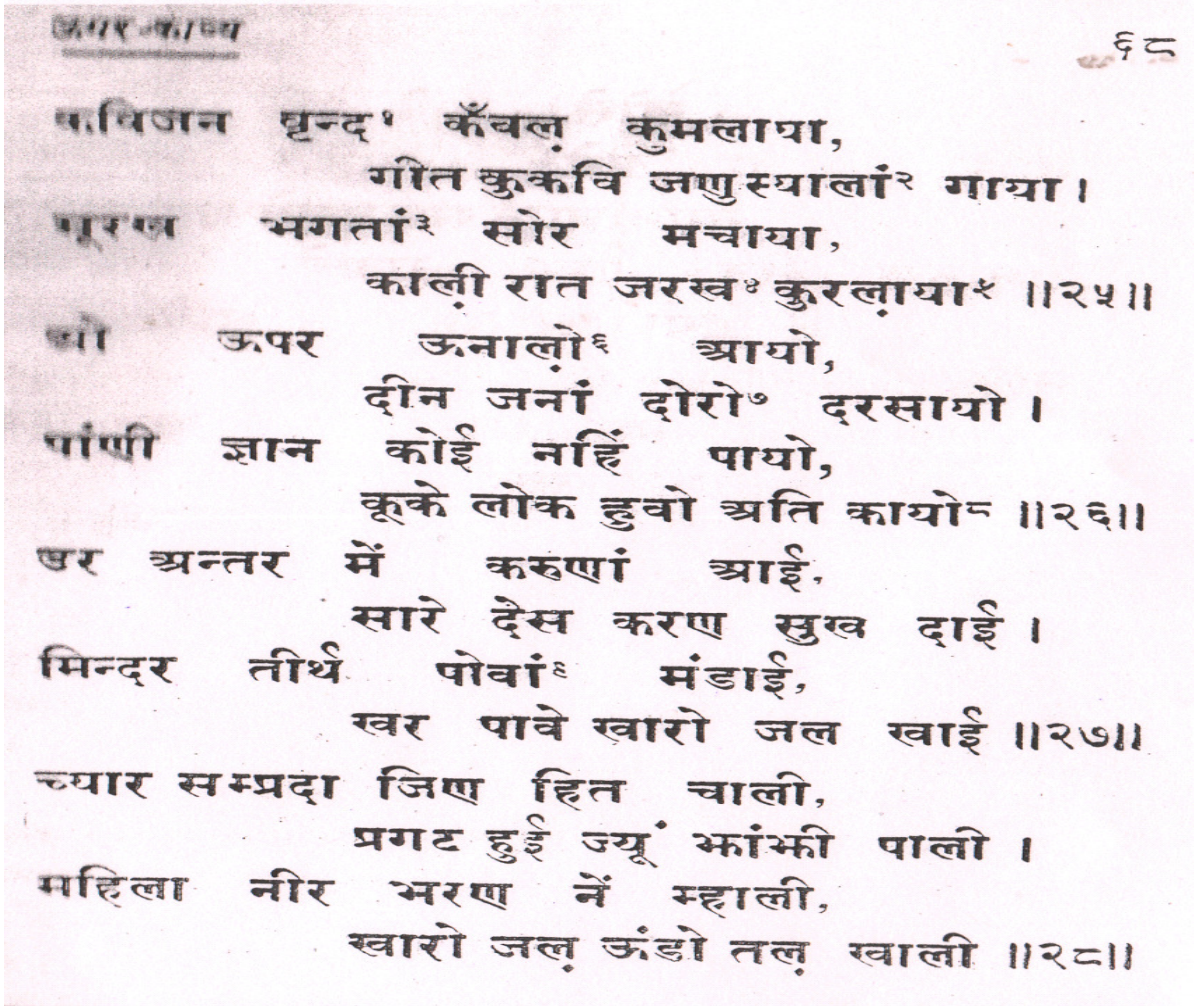 ऊमर-काव्य
६८
कविजन वृन्द१ कँवल़ कुमलाया,
गीत कुकवि जणुस्यालां२ गाया ।
मूरख भगतां३ सोर मचाया,
काल़ी रात जरख४ कुरल़ाया५ ॥२५॥
ऊपर ऊनाल़ो६ आयो,
दीन जनां दोरो७ दरसायो ।
पांणी ज्ञान कोई नहिं पायो,
कूके लोक हुवो अति कायो८ ॥२६॥
उर अन्तर में करुणां आई,
सारे दैस करण सुख दाई ।
मिन्दर तीर्थ पोवां९ मंडाई,
खर पावे खारो जल खाई ॥२७॥
च्यार सम्प्रदा जिण हित चाली,
प्रगट हुई ज्यूं झांझी पाली ।
महिला नीर भरण नें म्हाली,
खारो जल़ ऊंडो तल़ खाली ॥२८॥